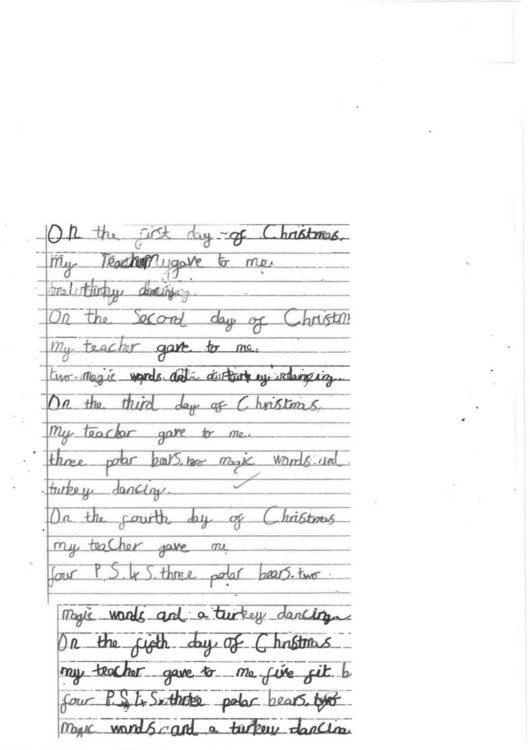 On the first day of Christmas,
my Teacher gave to me.
turkey dancing.
On the Second day of Christm
my teacher gave to me,
two magic words turkey dancing.
On the third day of Christmas,
my teacher gave to me.
three polar bears. two magic words and
turkey dancing.
On the fourth day of Christmas
my teacher gave me
four P.S.4 S. three polar bears. two
magic words and a turkey dancing
On the fifth day of Christmas
my teacher gave to me five fit b
four P.S 4 S. three polar bears, two
magic words and a turkey dancing